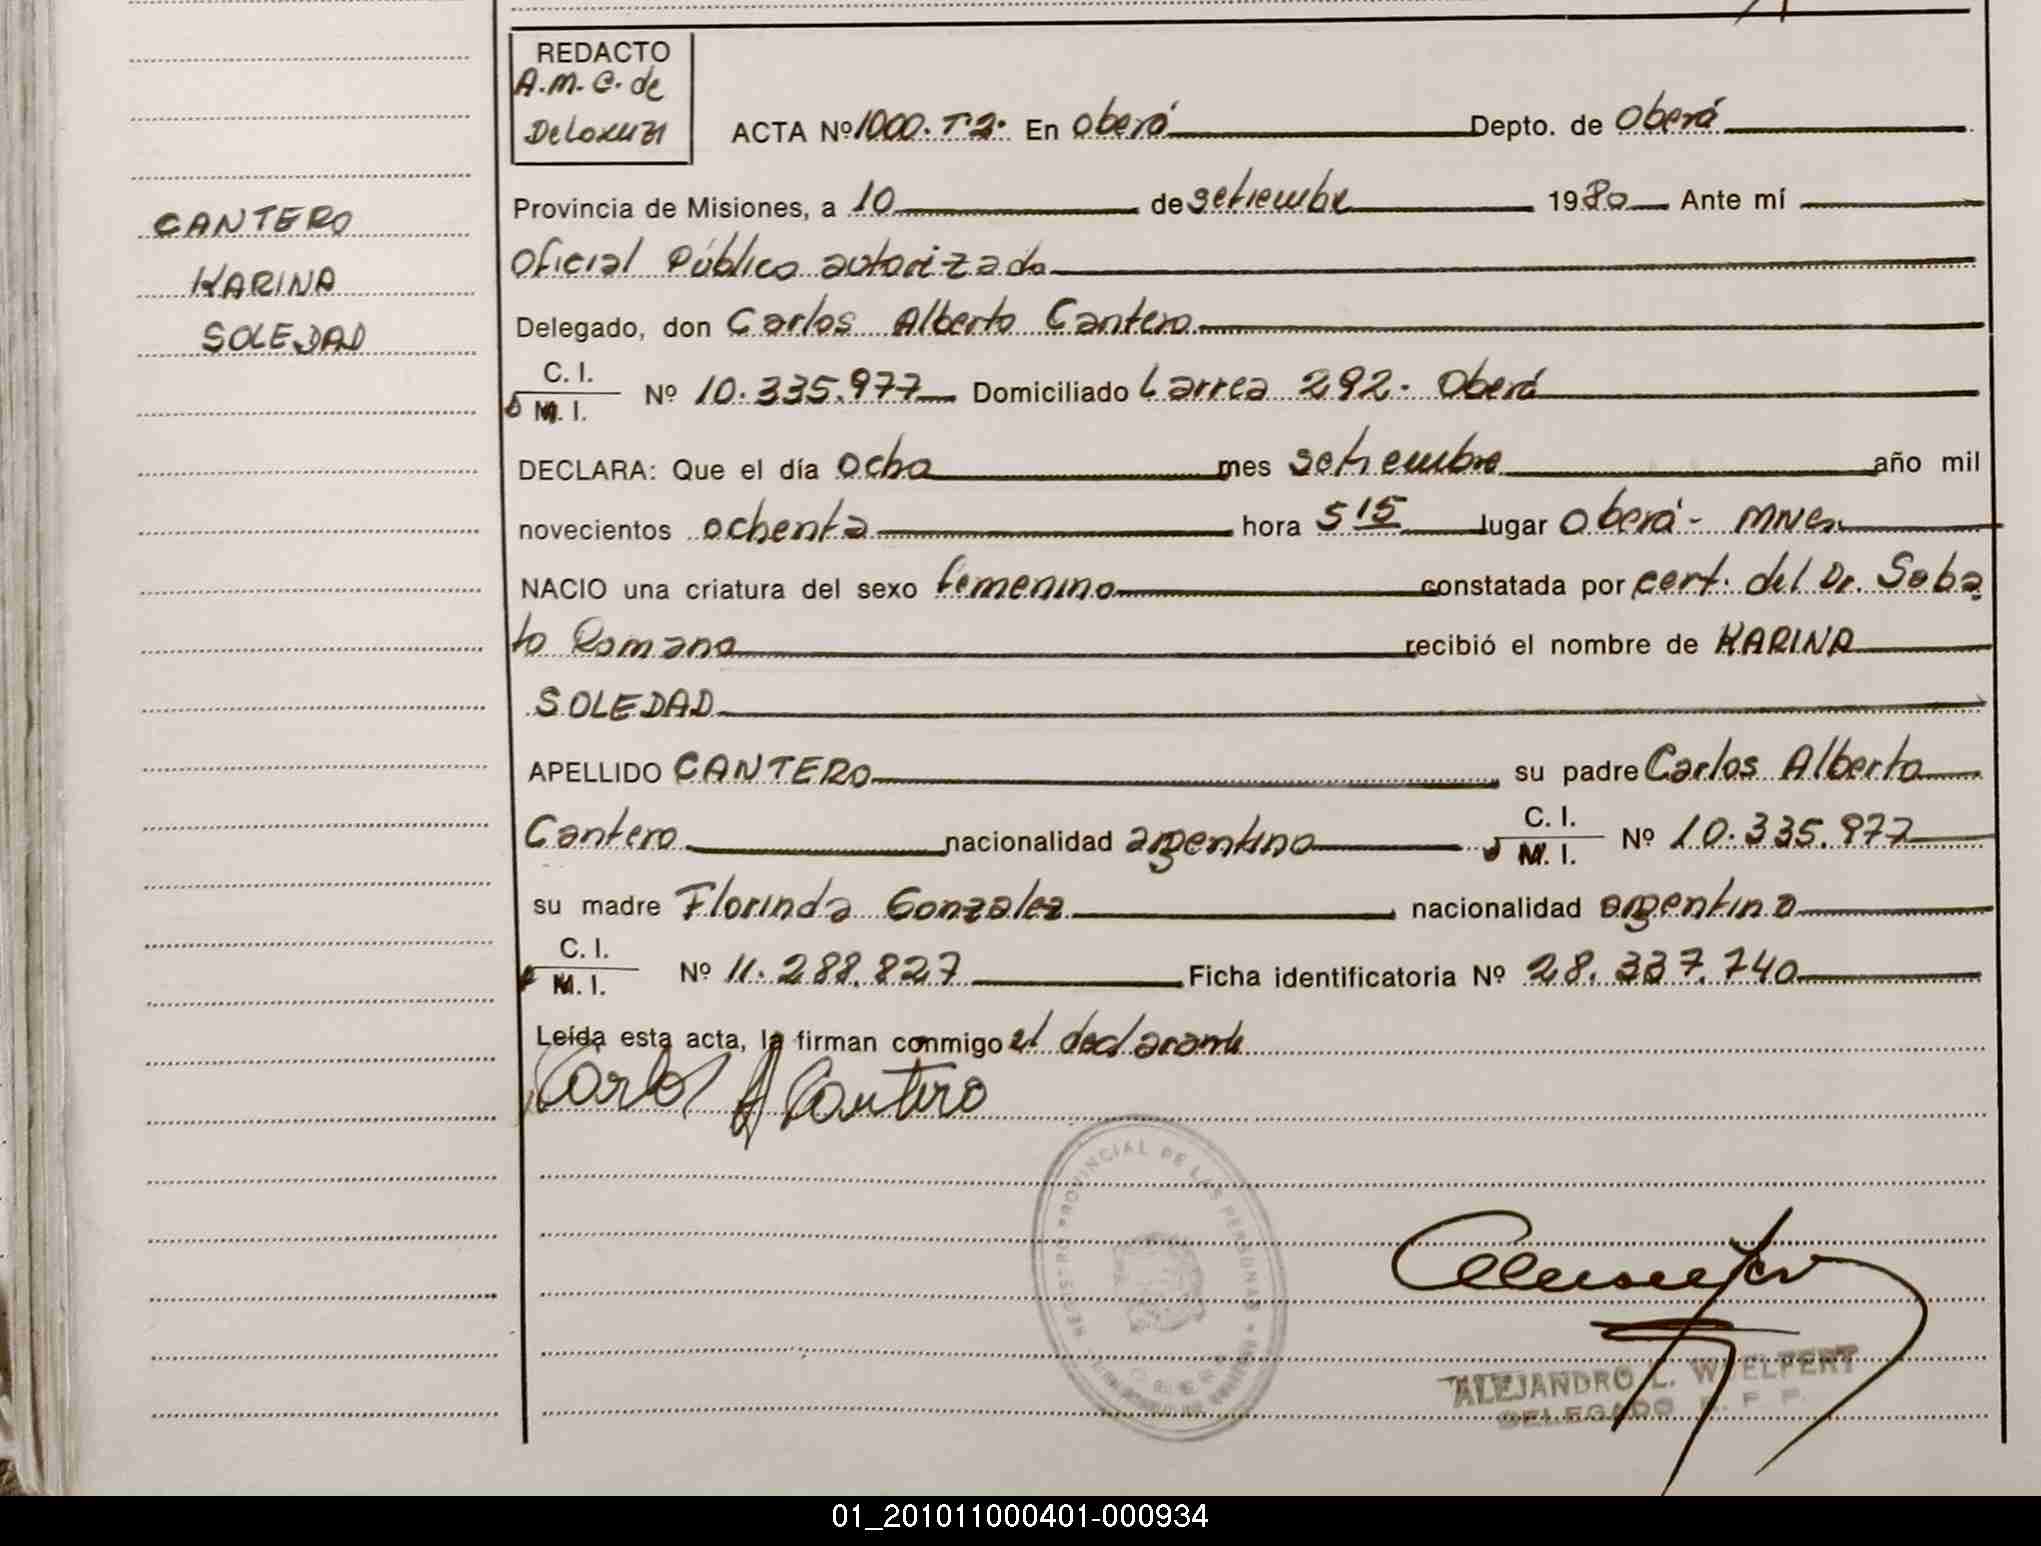 REDACTO
A.M.C. de
ACTA Nº 1000. T2. En Oberá Depto. de Oberá
Provincia de Misiones, a 10 de setiembre 1980 Ante mí
CANTERO
Oficial Público autorizado
KARINA
Delegado, don Carlos Alberto Cantero
SOLEDAD
C. I.
M. I. Nº 10.335.977 Domiciliado Larrea 292. Oberá
DECLARA: Que el día ocho mes setiembre año mil
novecientos ochenta hora 5 15 lugar Oberá - Mnes.
NACIO una criatura del sexo femenino constatada por cert. del Dr. Saba
to Romano recibió el nombre de KARINA
SOLEDAD
APELLIDO CANTERO su padre Carlos Alberto
Cantero nacionalidad argentino C. I. M. I. Nº 10.335.977
su madre Florinda Gonzalez nacionalidad argentina
C. I.
M. I. Nº 11.288.827 Ficha identificatoria Nº 28.337.740
Leída esta acta, la firman conmigo el declarante
Carlos A Cantero
REGISTRO PROVINCIAL DE LAS PERSONAS
ALEJANDRO L. WELPERT
DELEGADO
01_201011000401-000934